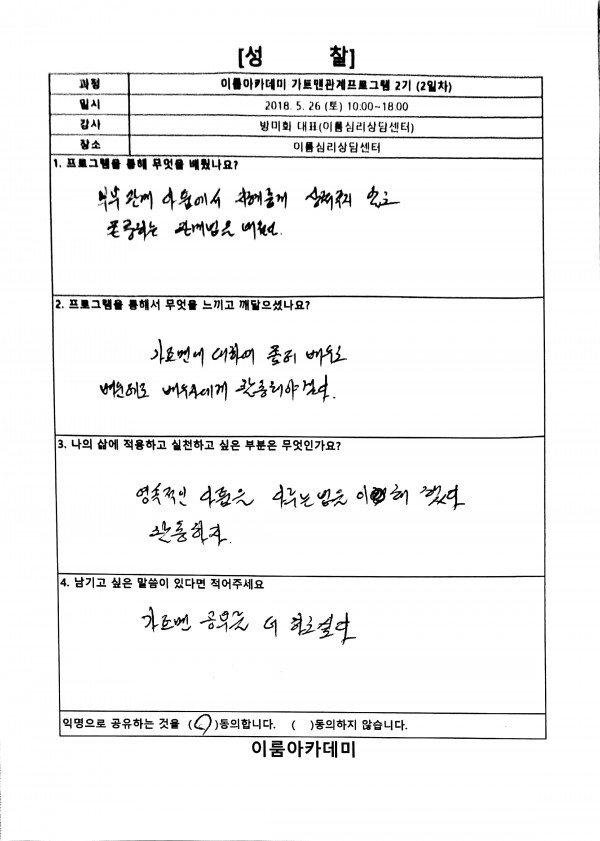 [성 찰]
과정 이룸아카데미 가트맨관계프로그램 2기 (2일차)
일시 2018. 5. 26 (토) 10:00~18:00
강사 방미화 대표(이룸심리상담센터)
장소 이룸심리상담센터
1. 프로그램을 통해 무엇을 배웠나요?
부부관계 다툼에서 지혜롭게 상처주지 않고
존중하는 관계법을 배웠다.
2. 프로그램을 통해서 무엇을 느끼고 깨달으셨나요?
가트맨에 대하여 좀더 배우고
배운대로 배우자에게 활용해야겠다.
3. 나의 삶에 적용하고 실천하고 싶은 부분은 무엇인가요?
영속적인 다툼을 다루는 법을
활용하자.
4. 남기고 싶은 말씀이 있다면 적어주세요
가트맨 공부를 더 하고싶다
익명으로 공유하는 것을 ( )동의합니다. ( )동의하지 않습니다.
이룸아카데미